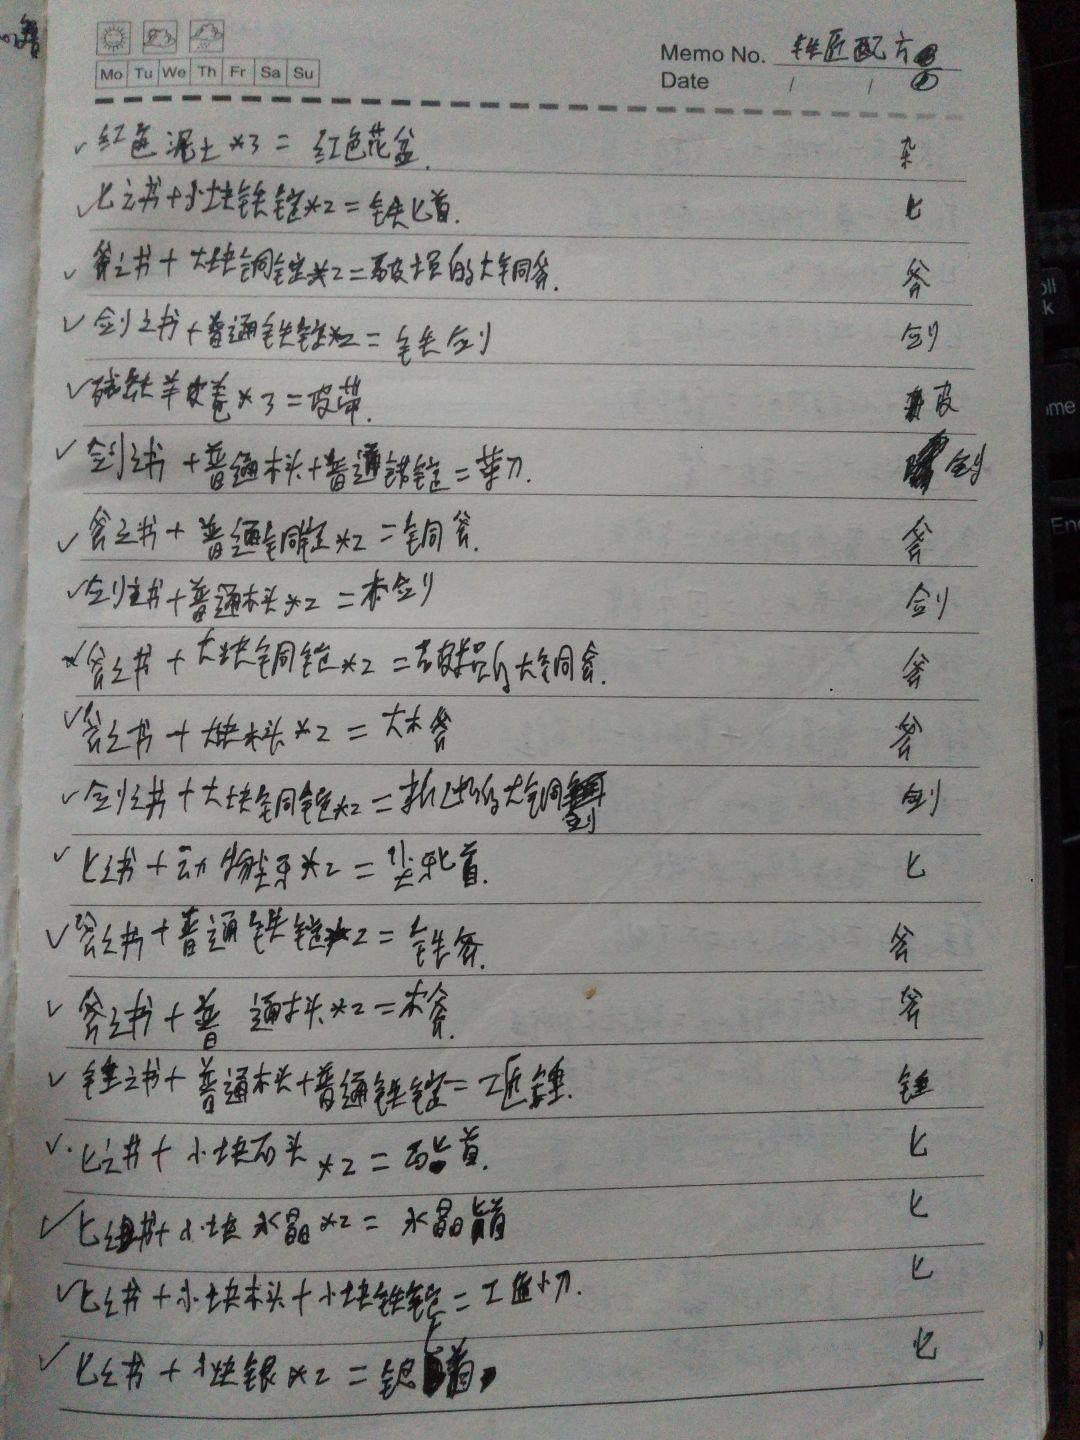 Mo Tu We Th Fr Sa Su
Memo No. 铁匠配方
Date / / ①
✓红色泥土*3=红色花盆. 杂
✓匕之书+小块铁锭*2=铁匕首. 匕
✓斧之书+大块铜锭*2=破损的大铜斧. 斧
✓剑之书+普通铁锭*2=铁剑 剑
✓残缺羊皮卷*3=皮带. 皮
✓剑之书+普通木头+普通铁锭=柴刀. 剑
✓斧之书+普通铜锭*2=铜斧. 斧
✓剑之书+普通木头*2=木剑 剑
斧之书+大块铜锭*2=破损的大铜斧. 斧
✓斧之书+大块木头*2=大木斧 斧
✓剑之书+大块铜锭*2=折断的大铜剑 剑
✓匕之书+动物尖牙*2=尖牙匕首. 匕
✓斧之书+普通铁锭*2=铁斧. 斧
✓斧之书+普通木头*2=木斧. 斧
✓锤之书+普通木头+普通铁锭=工匠锤. 锤
✓.匕之书+小块石头*2=石匕首. 匕
✓匕之书+小块水晶*2=水晶匕首 匕
✓匕之书+小块木头+小块铁锭=工匠小刀. 匕
✓匕之书+小块银*2=银匕首. 匕
ll
k
ome
End